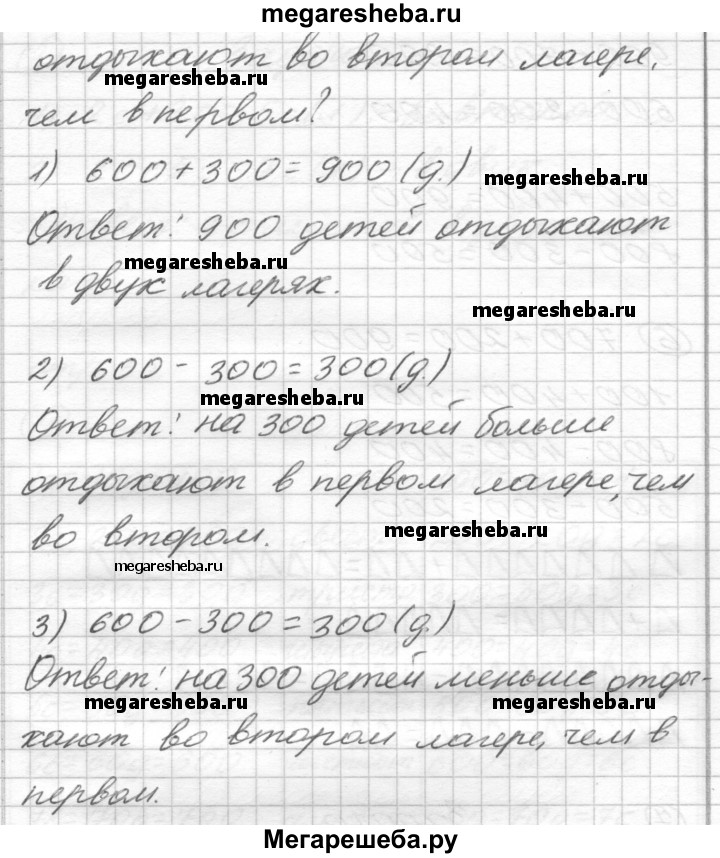 megaresheba.ru
отдыхают во втором лагере,
megaresheba.ru
чем в первом?
1) 600+300=900(д.)
megaresheba.ru
Ответ: 900 детей отдыхают
megaresheba.ru
в двух лагерях.
megaresheba.ru
2) 600-300=300(д.)
megaresheba.ru
Ответ: на 300 детей больше
отдыхают в первом лагере, чем
во втором.
megaresheba.ru
megaresheba.ru
3) 600-300=300(д.)
Ответ: на 300 детей меньше отды-
megaresheba.ru megaresheba.ru
хают во втором лагере, чем в
первом.
Мегарешеба.ру